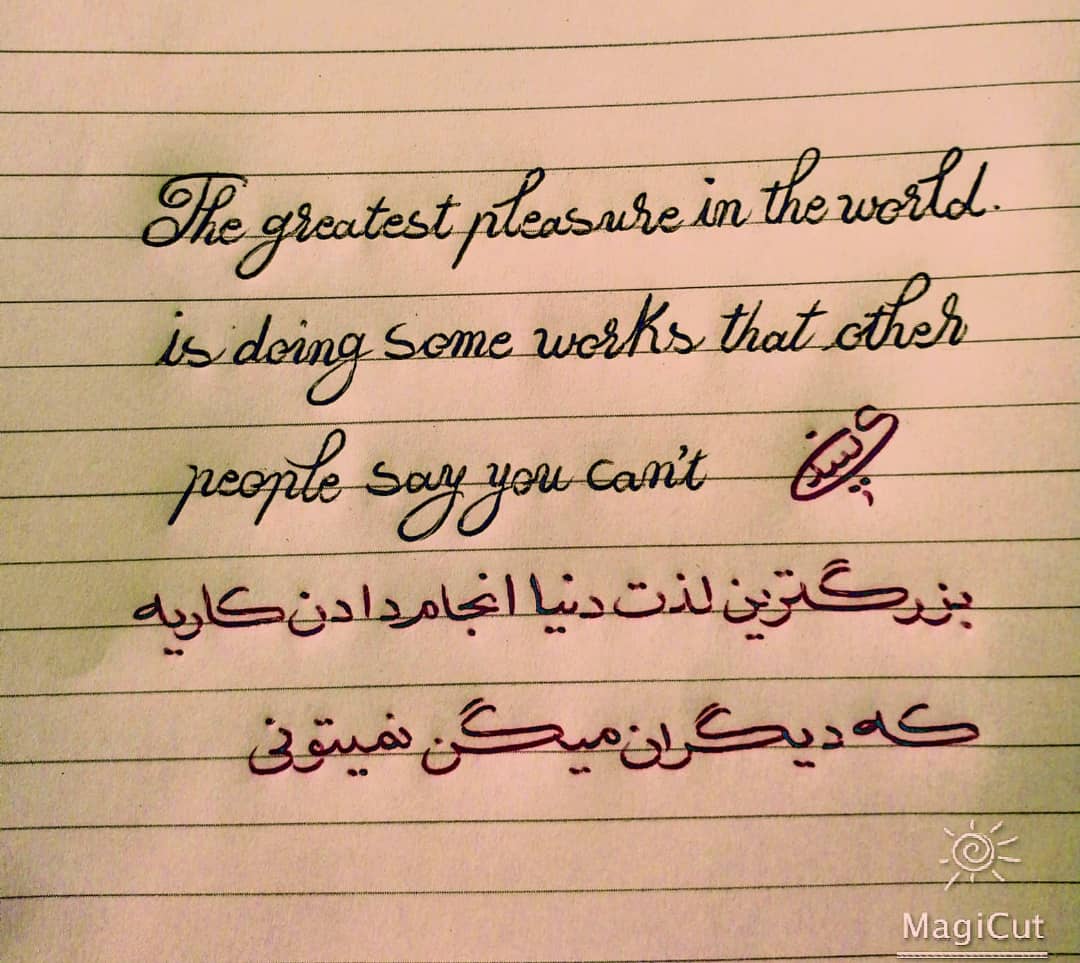 The greatest pleasure in the world.
is doing some works that other
people say you can't
بزرگترین لذت دنیا انجام دادن کاریه
که دیگران میگن نمیتونی
MagiCut